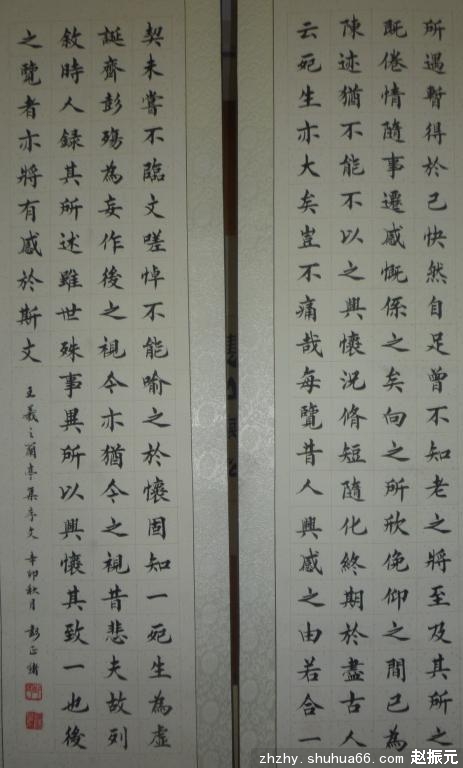 所遇暫得於己快然自足曾不知老之將至及其所之
既倦情隨事遷感慨係之矣向之所欣俛仰之間已為
陳迹猶不能不以之興懷況脩短隨化終期於盡古人
云死生亦大矣豈不痛哉每覽昔人興感之由若合一
契未嘗不臨文嗟悼不能喻之於懷固知一死生為虛
誕齊彭殤為妄作後之視今亦猶今之視昔悲夫故列
敘時人録其所述雖世殊事異所以興懷其致一也後
之覽者亦將有感於斯文
王羲之蘭亭集序文 辛卯秋月 彭正
zhzhy.shuhua66.com 赵振元